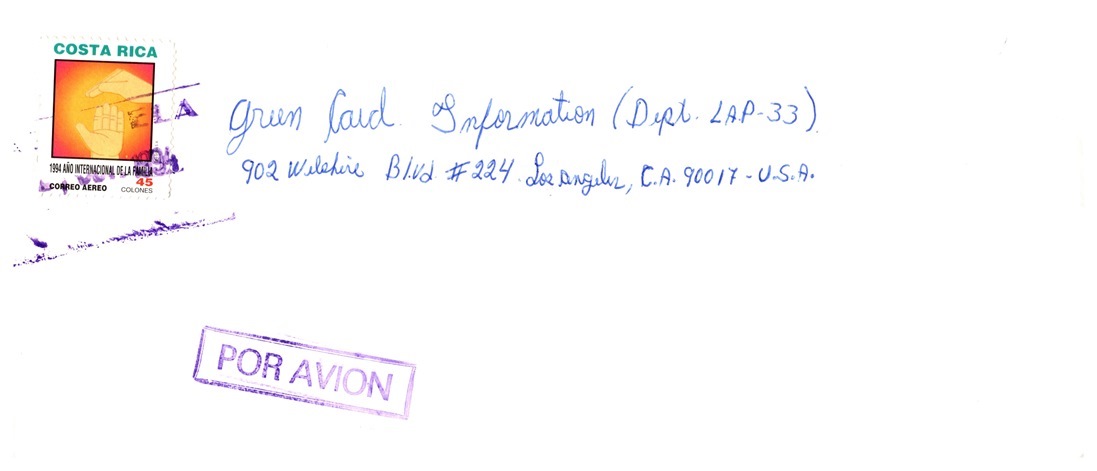 COSTA RICA
1994 AÑO INTERNACIONAL DE LA FAMILIA
45
CORREO AEREO COLONES
Green Card. Information (Dept. LAP-33).
902 Wilshire Blvd. #224. Los Angeles, C.A. 90017-U.S.A.
POR AVION